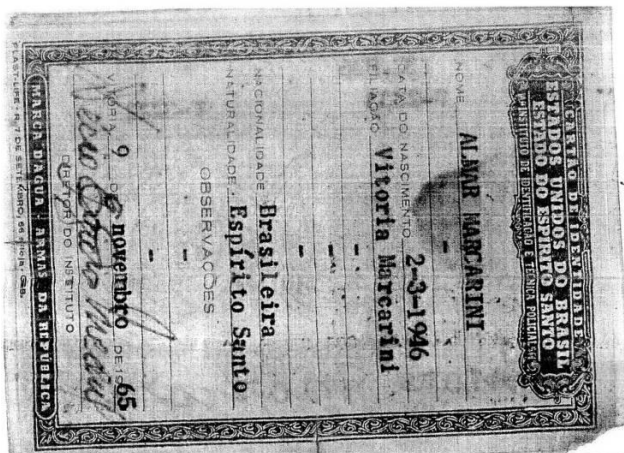 CARTÃO DE IDENTIDADE
ESTADOS UNIDOS DO BRASIL
ESTADO DO ESPIRITO SANTO
INSTITUTO DE IDENTIFICAÇÃO E TÉCNICA POLICIAL
NOME ALMAR MARCARINI
-
DATA DO NASCIMENTO 2-3-1946
FILIAÇÃO Vitoria Marcarini
-
-
-
NACIONALIDADE Brasileira
NATURALIDADE Espírito Santo
OBSERVAÇÕES
-
-
VITORIA, 9 DE novembro DE 1965
DIRETOR DO INSTITUTO
MARCA D'AGUA: ARMAS DA REPUBLICA
PLAST-LIFE - R. 7 DE SETEMBRO, 66